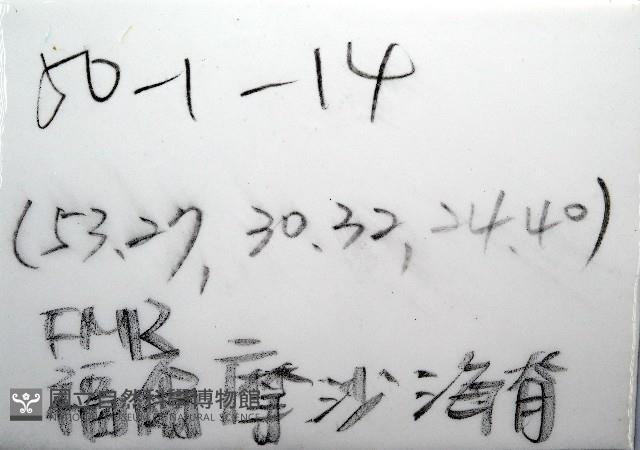 50-1-14
(53.27, 30.32, 24.40)
FMB
福爾摩沙海脊
國立自然科學博物館
NATIONAL MUSEUM OF NATURAL SCIENCE